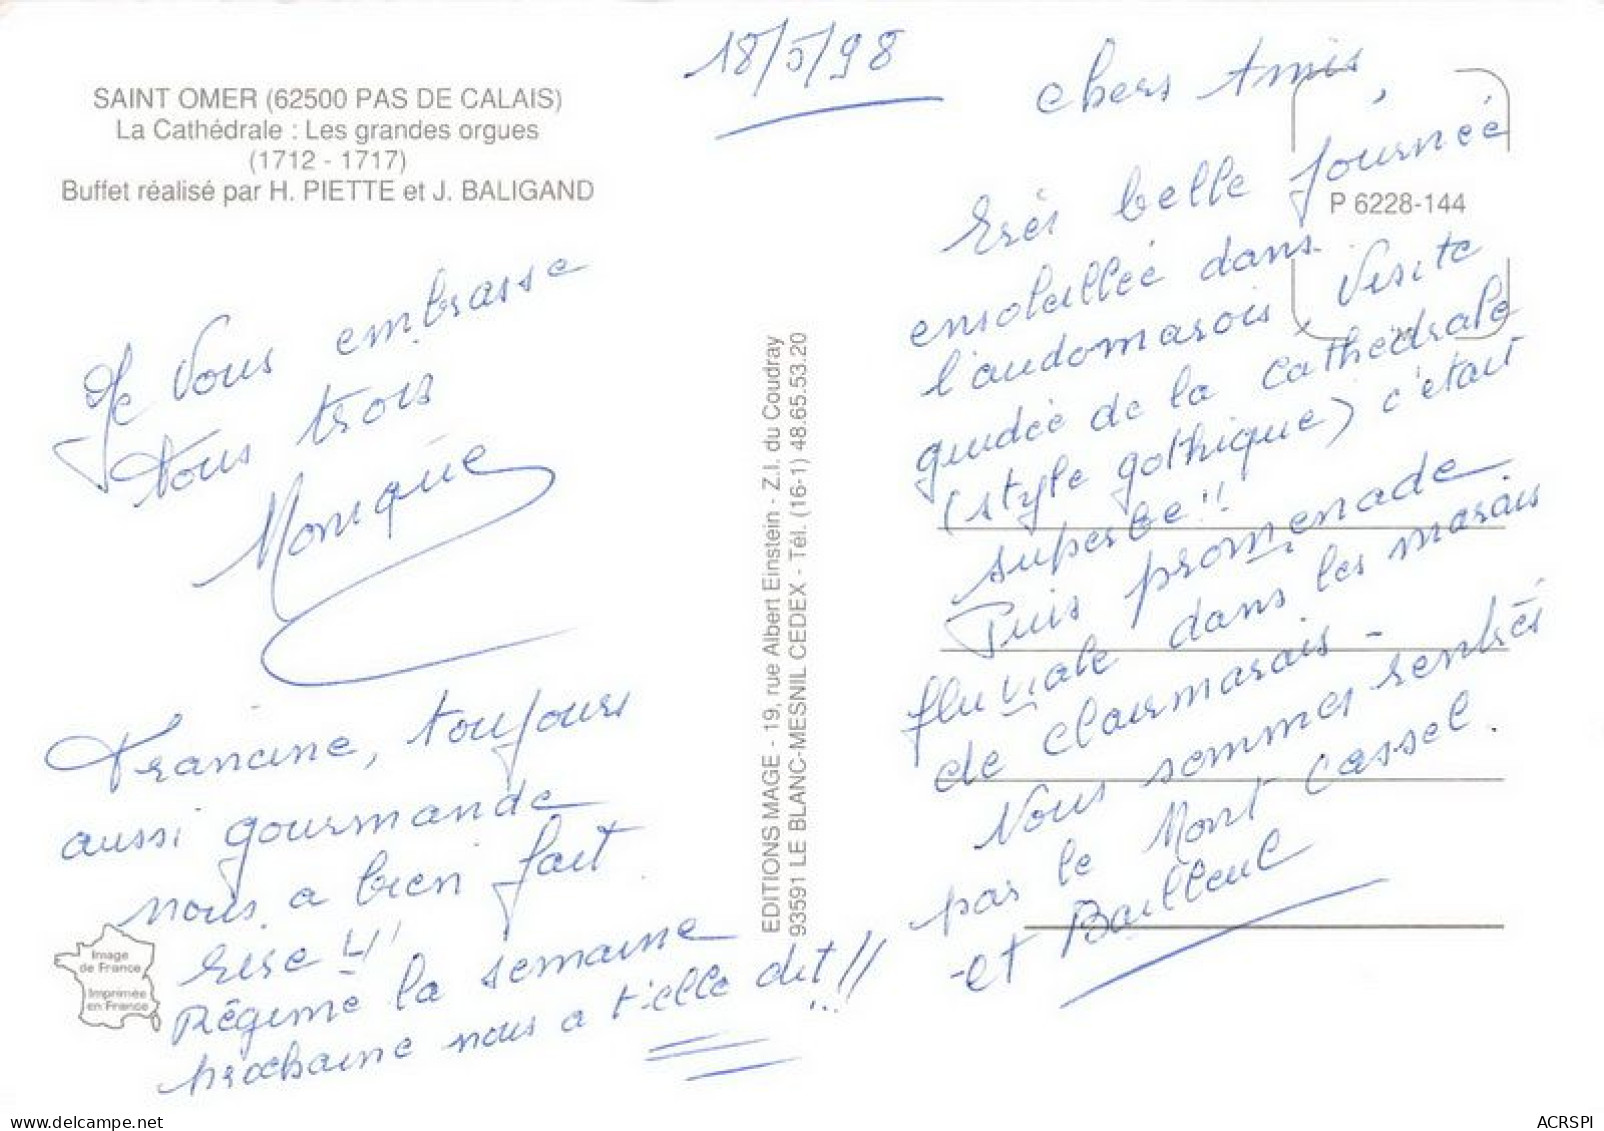 SAINT OMER (62500 PAS DE CALAIS)
La Cathédrale : Les grandes orgues
(1712 - 1717)
Buffet réalisé par H. PIETTE et J. BALIGAND
18/5/98
Chers Amis,
Très belle journée
ensoleillée dans
l'audomarois, Visite
guidée de la cathédrale
(style gothique) c'était
superbe !!
Puis promenade
fluviale dans les marais
de clairmarais -
Nous sommes rentrés
par le Mont Cassel.
et Bailleul
P 6228-144
Je Vous embrasse
tous trois
Monique
Francine, toujours
aussi gourmande
nous a bien fait
rire !!
Régime la semaine
prochaine nous a t'elle dit !!
...
EDITIONS MAGE - 19, rue Albert Einstein - Z.I. du Coudray
93591 LE BLANC-MESNIL CEDEX - Tél. (16-1) 48.65.53.20
Image
de France
Imprimée
en France
delcampe.net
ACRSPI